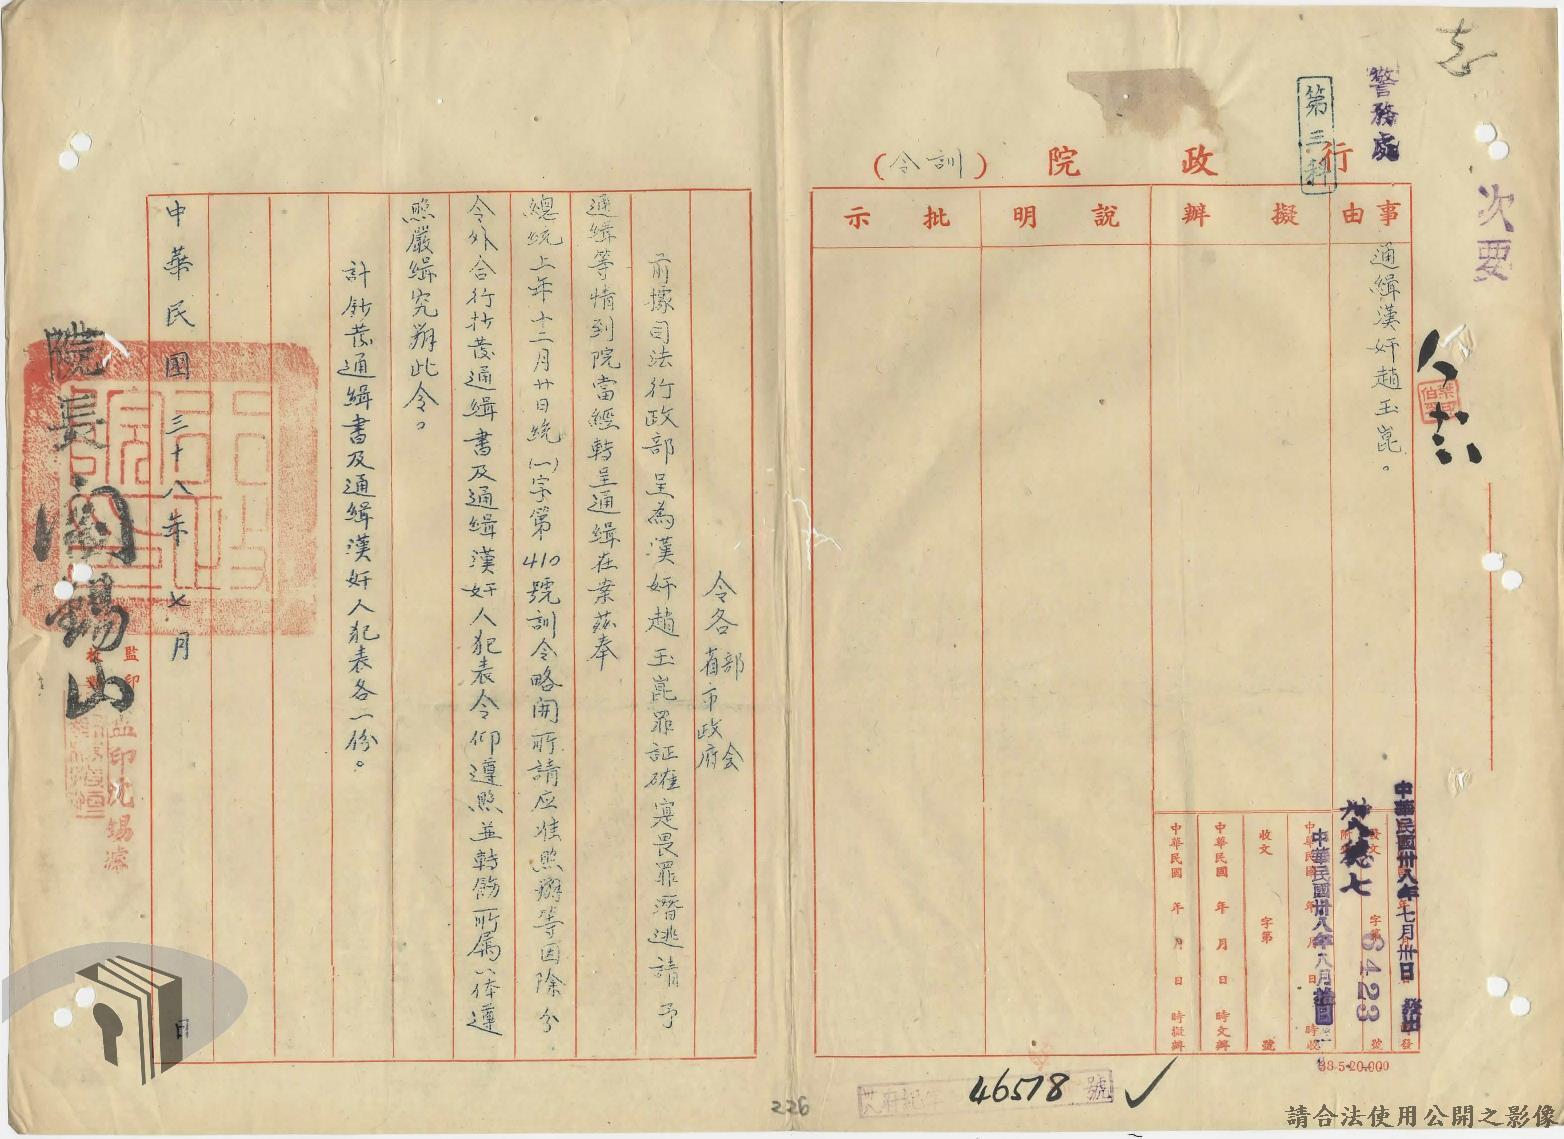 警務處
第三科
次要
行政院(訓令)
事由
擬辦
說明
批示
通緝漢奸趙玉崑。
中華民國卅八年七月卅日發出
穗七
字第6423號
中華民國卅八年八月
收文 字第 號
中華民國 年 月 日 時交辦
中華民國 年 月 日 時擬辦
38·5·20·000
46518號
226
令各部會省市政府
前據司法行政部呈為漢奸趙玉崑罪証確寔畏罪潛逃請予
通緝等情到院當經轉呈通緝在案茲奉
總統上年十二月廿日統(一)字第410號訓令略開所請应准照辦等因除分
令外合行抄發通緝書及通緝漢奸人犯表令仰遵照並轉飭所属一体遵
照嚴緝究辦此令。
計鈔發通緝書及通緝漢奸人犯表各一份。
中華民國三十八年七月 日
院長閻錫山
監印
監印沈錫
請合法使用公開之影像